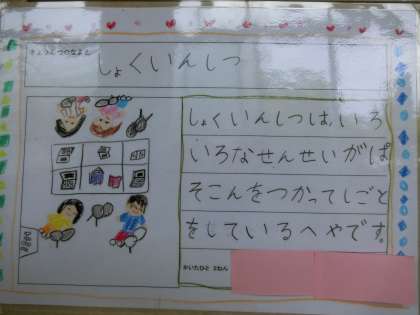 しょくいんしつ
しょくいんしつは、いろ
いろなせんせいがぱ
そこんをつかってしごと
をしているへやです。
かいたひと 2ねん